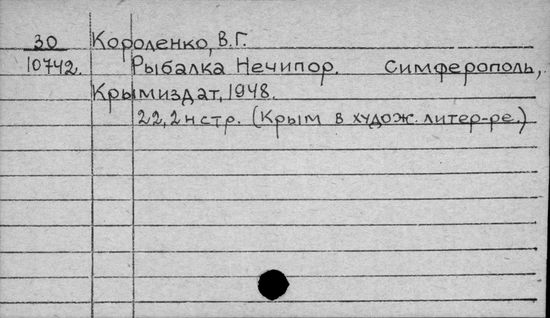 30 Короленко, В.Г.
10742. Рыбалка Нечипор. Симферополь,
Крымиздат, 1948.
22, 2 н стр. (Крым в худож. литер-ре.)